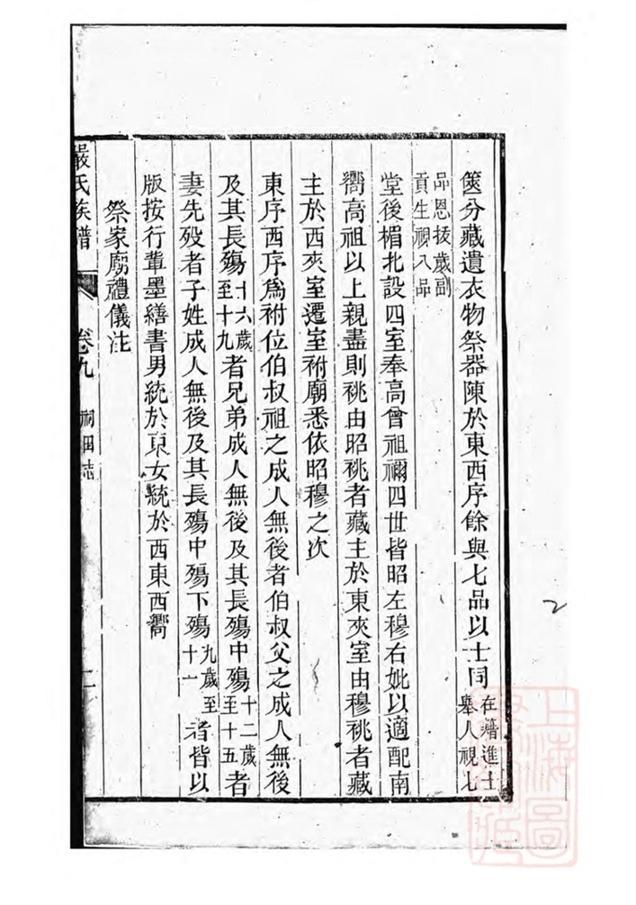 篋分藏遺衣物祭器陳於東西序餘與七品以士同在籍進士舉人視七
品恩拔歲副貢生視八品
堂後楣北設四室奉高曾祖禰四世皆昭左穆右妣以適配南
嚮高祖以上親盡則祧由昭祧者藏主於東夾室由穆祧者藏
主於西夾室遷室祔廟悉依昭穆之次
東序西序爲祔位伯叔祖之成人無後者伯叔父之成人無後
及其長殤十六歲至十九者兄弟成人無後及其長殤中殤十二歲至十五者
妻先歿者子姓成人無後及其長殤中殤下殤九歲至十一者皆以
版按行輩墨繕書男統於東女統於西東西嚮
祭家廟禮儀注
嚴氏族譜 卷九 祠田誌
上海圖